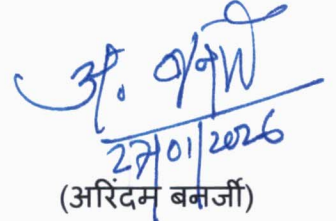 अ. बनर्जी
27/01/2026
(अरिंदम बनर्जी)